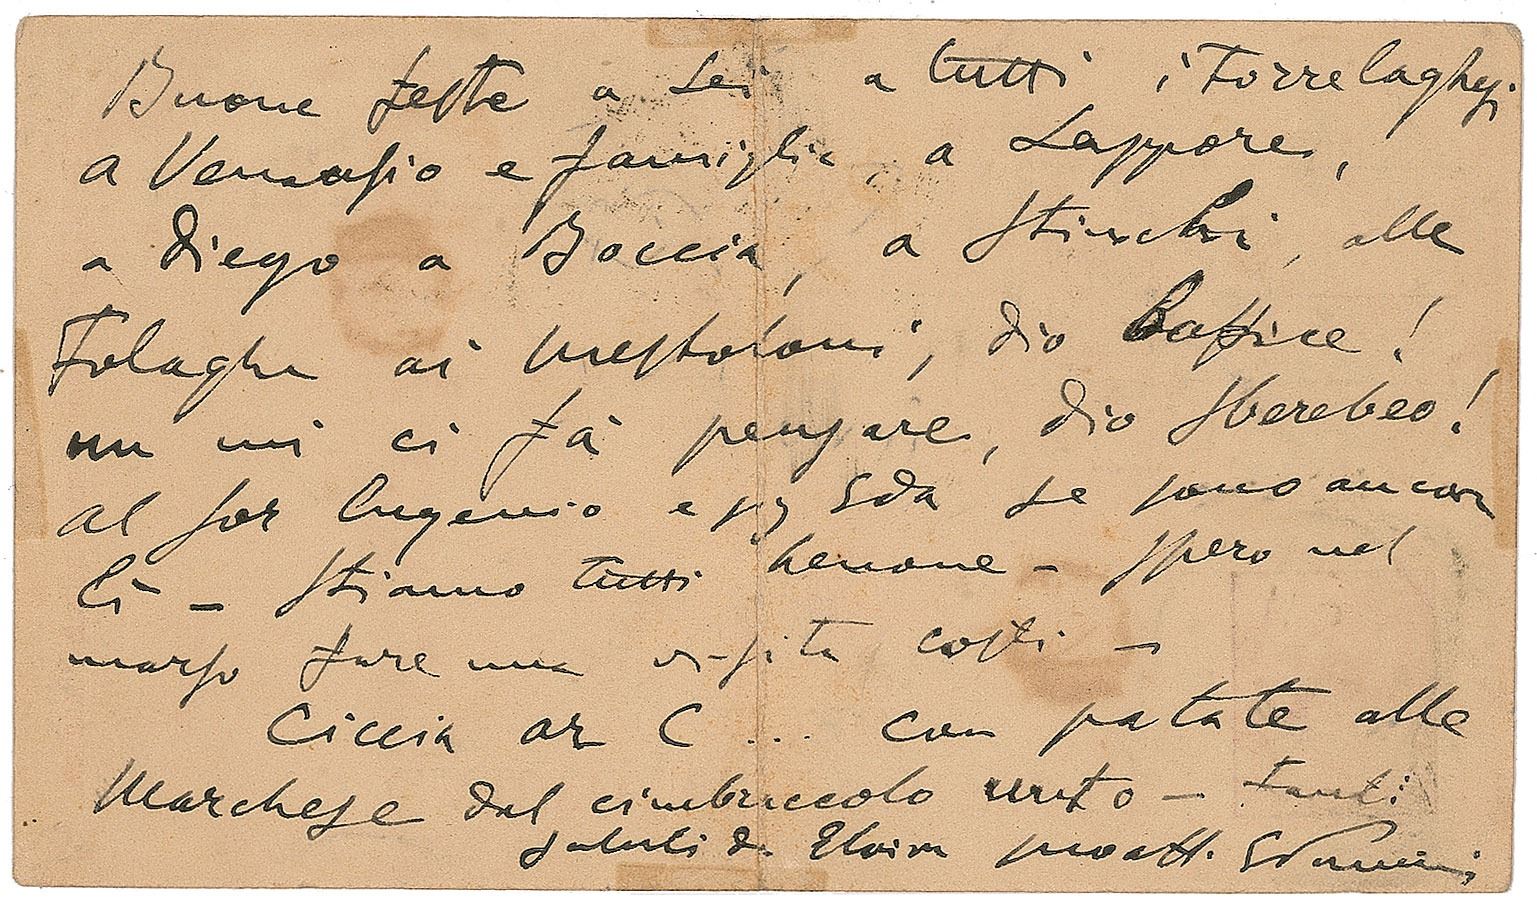 Buone feste a Lei a tutti i Torrelaghesi
a Venanzio e famiglia a Lappore,
a Diego a Boccia, a Stinchi, alle
Folaghe ai mestoloni, dio Baffice!
nu mi ci fà pensare, dio sberebeo!
al sor Eugenio e Sig Eda se sono ancora
lì – Stiamo tutti benone – Spero nel
marzo fare una visita costì –
Ciccia ar C ... con patate alle
Marchese dal cimbraccolo unto – Tanti
saluti da Elvira GPuccini